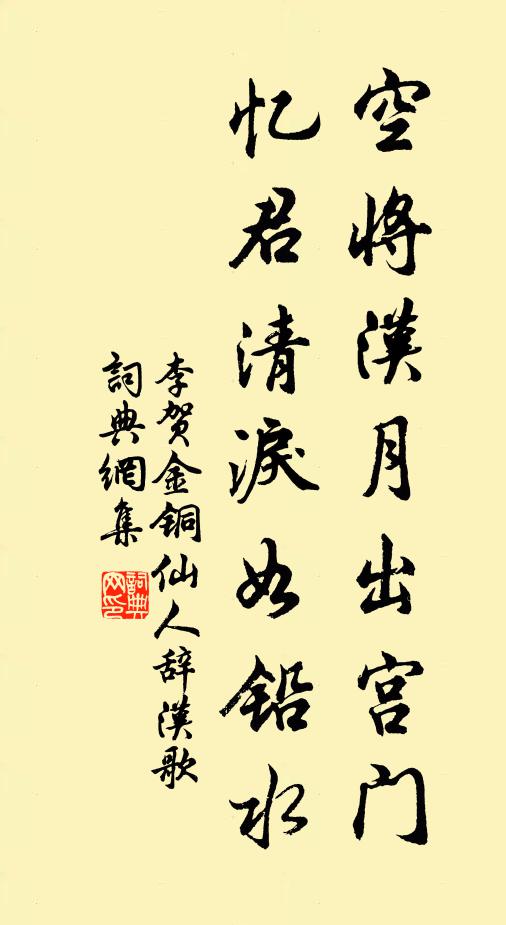 空将漢月出宫门
忆君清淚如铅水
李贺金铜仙人辞漢歌
詞典網集
詞典网印